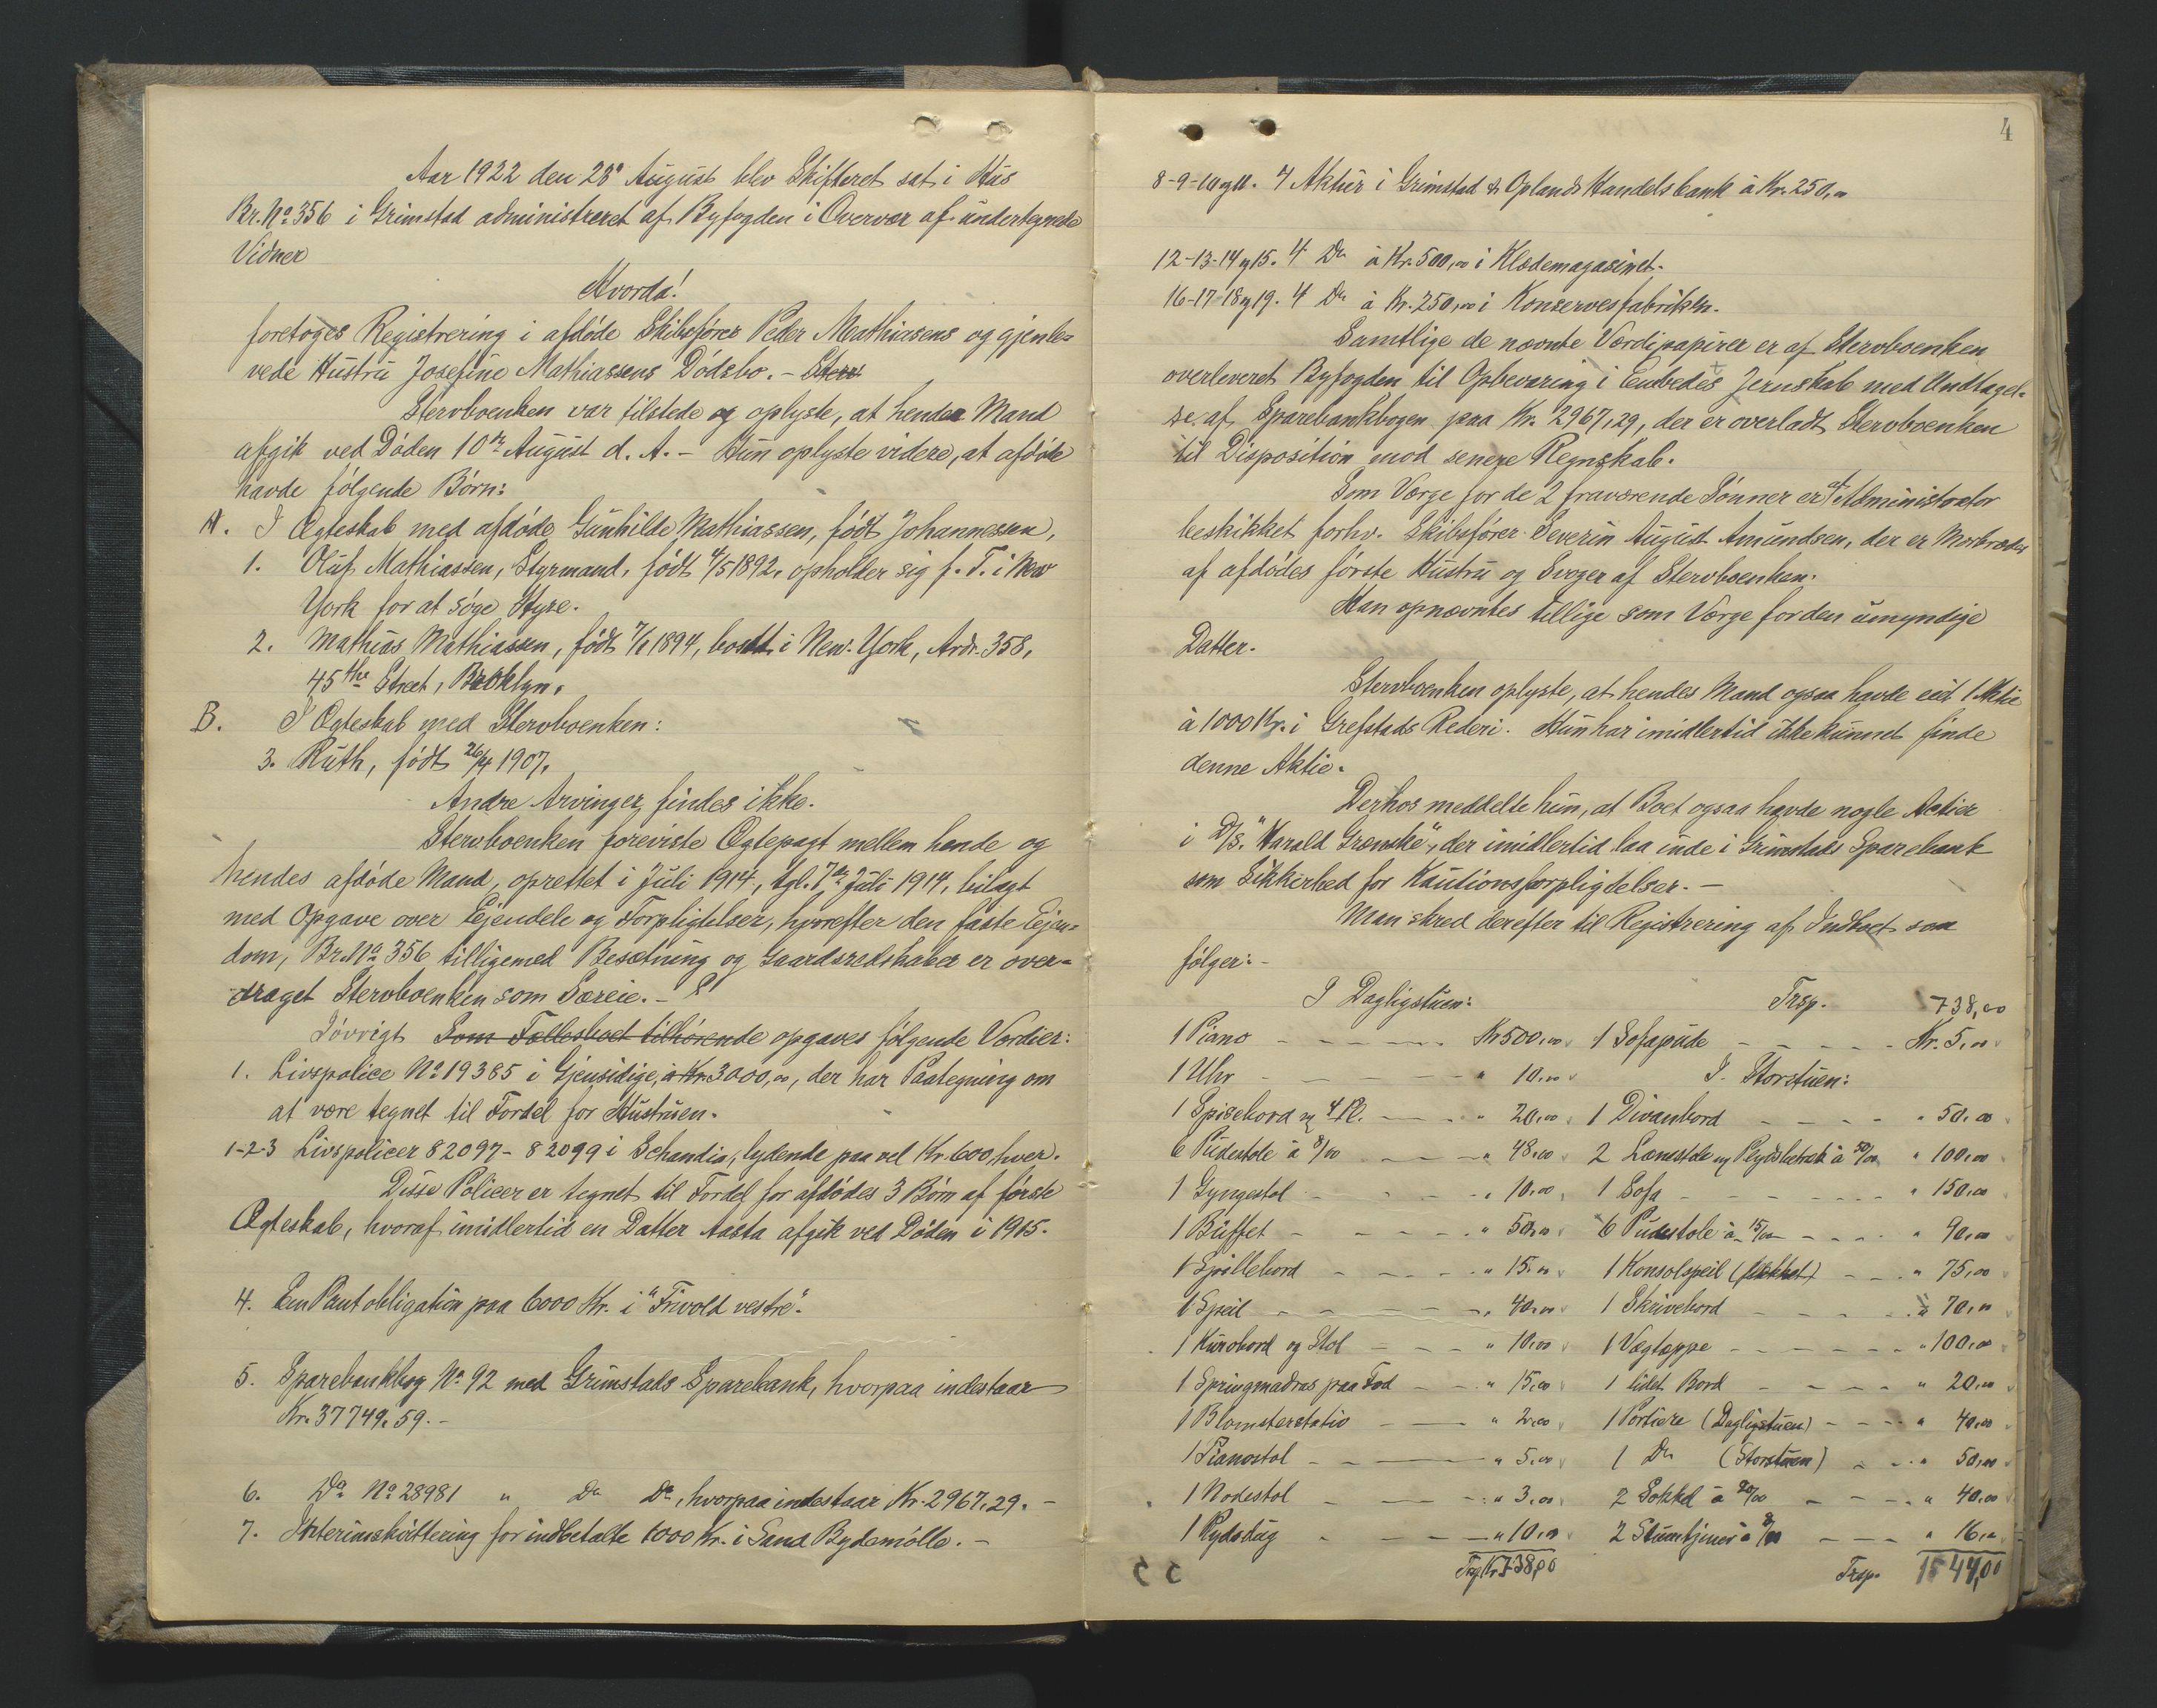 Aar 1922 den 28' August blev Skifteret sat i Hus
Br. No 356 i Grimstad administreret af Byfogden i Overvær af undertegnede
Vidner
Hvorda!
foretoges Registrering i afdøde Skibsfører Peder Mathiasens og gjenle=
vede Hustru Josefine Mathiassens Dødsbo. – Sterv
Stervboenken var tilstede og oplyste, at hendes Mand
afgik ved Døden 10de August d. A. – Hun oplyste videre, at afdøde
havde følgende Børn:
A. I Ægteskab med afdøde Gunhilde Mathiassen, født Johannessen,
1. Oluf Mathiassen, Styrmand, født 4/5 1892, opholder sig f. T. i New
York for at søge Hyre.
2. Mathias Mathiassen, født 1894, bosat i New-York, Adr. 358,
45 the Street, Broklyn.
B. I Ægteskab med Stervboenken:
3. Ruth, født 26/4 1907.
Andre Arvinger findes ikke.
Stervboenken foreviste Ægtepagt mellem hende og
hendes afdøde Mand, oprettet i Juli 1914, tgl. 7de Juli 1914, bilagt
med Opgave over Eiendele og Forpligtelser, hvorefter den faste Eien=
dom, Br. No 356 tilligemed Besætning og Gaardsredskaber er over=
draget Stervboenken som Særeie. –
Iøvrigt Som Fællesboet tilhørende opgaves følgende Værdier:
1. Livspolice No 19385 i Gjensidige, à Kr. 3000,00, der har Paategning om
at være tegnet til Fordel for Hustruen.
1-2-3 Livspolicer 82097 - 82099 i Schandia, lydende paa vel Kr. 600 hver.
Disse Policer er tegnet til Fordel for afdødes 3 Børn af første
Ægteskab, hvoraf imidlertid en Datter Aasta afgik ved Døden i 1915.
4. Een Pantobligation paa 6000 Kr. i "Frivold vestre".
5. Sparebankbog No 92 med Grimstads Sparebank, hvorpaa indestaar
Kr. 37749.59. –
6. Do No 28981 " Do Do, hvorpaa indestaar Kr. 2967,29. –
7. Interimskvittering for indbetalte 1000 Kr. i Sand Bydemølle. –
4
8-9-10 og 11. 4 Aktier i Grimstad & Oplands Handelsbank à Kr. 250,00
12-13-14 og 15. 4 Do à Kr. 500,00 i Klædemagasinet.
16-17-18 og 19. 4 Do à Kr. 250,00 i Konservesfabriken.
Samtlige de nævnte Værdipapirer er af Stervboenken
overleveret Byfogden til Opbevaring i Embedets Jernskab med Undtagel=
se af Sparebankbogen paa Kr. 2967,29, der er overladt Stervboenken
til Disposition mod senere Regnskab.
Som Værge for de 2 fraværende Sønner er af Administrator
beskikket forhv. Skibsfører Severin August Amundsen, der er Morbroder
af afdødes første Hustru og Svoger af Stervboenken.
Han opnævntes tillige som Værge for den umyndige
Datter.
Stervboenken oplyste, at hendes Mand ogsaa havde eiet 1 Aktie
à 1000 Kr. i Grefstads Rederi. Hun har imidlertid ikke kunnet finde
denne Aktie.
Derhos meddelte hun, at Boet ogsaa havde nogle Actier
i D/S. "Harald Grænske", der imidlertid laa inde i Grimstads Sparebank
som Sikkerhed for Kautionsforpligtelser. –
Man skred derefter til Registrering af Indboet som
følger: –
I Dagligstuen: Trsp. 738,00
1 Piano Kr 500,00 1 Sofapude Kr. 5,00
1 Uhr " 10,00 I Storstuen:
1 Spisebord og 4 Pl. " 20,00 1 Divanbord " 50,00
6 Pudestole à 8/00 " 48,00 2 Lænestole og Plydsbetræk à 50/00 " 100,00
1 Gyngestol " 10,00 1 Sofa " 150,00
1 Buffet " 50,00 6 Pudestole à 15/00 " 90,00
1 Spillebord " 15,00 1 Konsolspeil " 75,00
1 Speil " 40,00 1 Skrivebord " 70,00
1 Kurvbord og Stol " 10,00 1 Vægtæppe " 100,00
1 Springmadras paa Fod " 15,00 1 lidet Bord " 20,00
1 Blomsterstativ " 2,00 1 Portiere (Dagligstuen) " 40,00
1 Pianostol " 5,00 1 Do (Storstuen) " 50,00
1 Nodestol " 3,00 2 Sokkel à 20/00 " 40,00
1 Plydsdug " 10,00 2 Stumtjener à 8/00 " 16,00
Trsp. Kr 738,00 Trsp. 1544,00